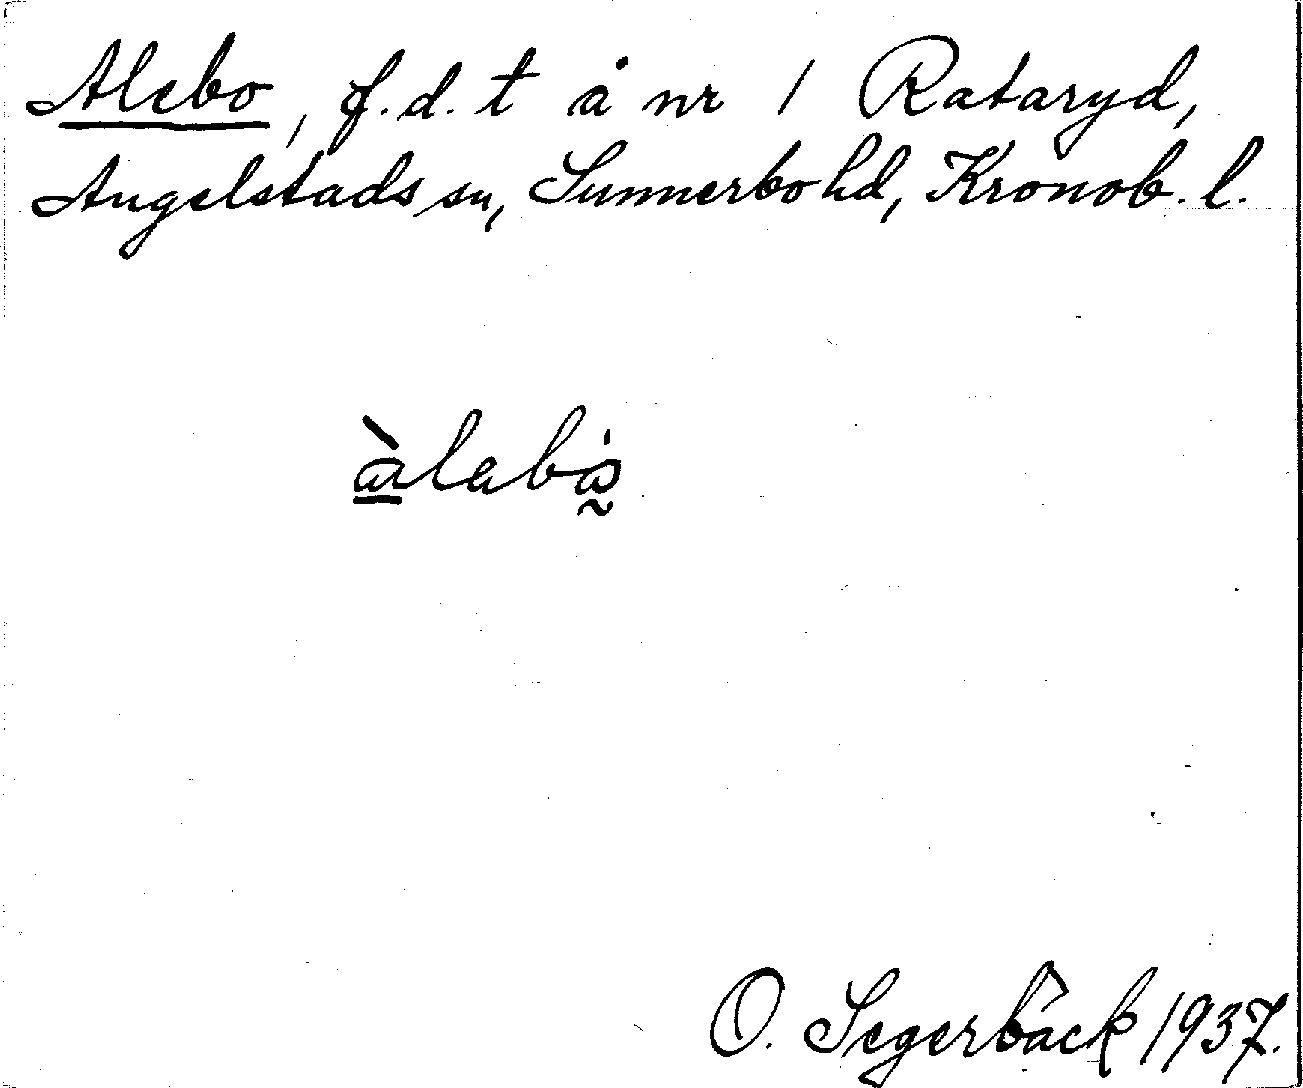 Alebo, f.d. t å nr 1 Rataryd,
Angelstads sn, Sunnerbo hd, Kronob. l.
àlabås
O. Segerbäck 1937.